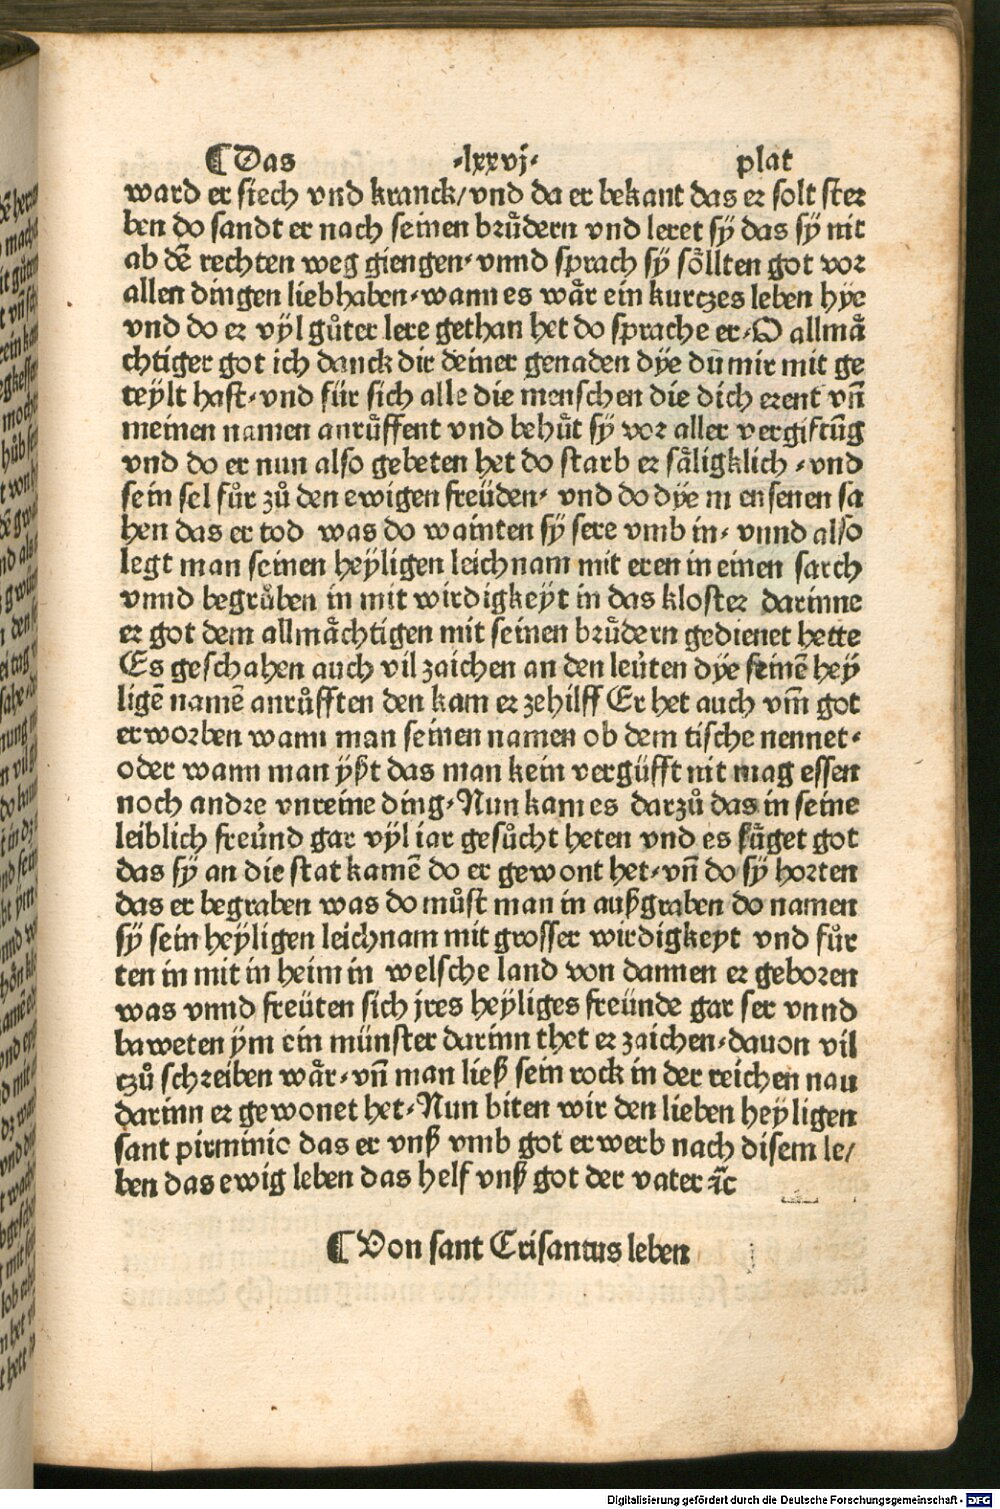 ¶ Das ·lxxvj· plat
ward er siech vnd kranck/vnd da er bekant das er solt ster
ben do sandt er nach seinen bruͤdern vnd leret sÿ das sÿ nit
ab dē rechten weg giengen· vnnd sprach sÿ soͤllten got vor
allen dingen liebhaben·wann es waͤr ein kurtzes leben hye
vnd do er vÿl guͦter lere gethan het do sprache er·O allmaͤ
chtiger got ich danck dir deiner genaden dÿe du mir mit ge
teÿlt hast·vnd für sich alle die menschen die dich erent vn̄
meinen namen anruͤffent vnd behuͤt sÿ vor aller vergiftūg
vnd do er nun also gebeten het do starb er saͤligklich ·vnd
sein sel fuͦr zuͦ den ewigen freüden· vnd do dÿe m ensenen sa
hen das er tod was do wainten sÿ sere vmb in· vnnd also
legt man seinen heÿligen leichnam mit eren in einen sarch
vnnd begruͦben in mit wirdigkeÿt in das kloster darinne
er got dem allmaͤchtigen mit seinen bruͤdern gedienet hette
Es geschahen auch vil zaichen an den leüten dÿe seinē heÿ
ligē namē anruͦfften den kam er zehilff Er het auch vm̄ got
erworben wann man seinen namen ob dem tische nennet·
oder wann man ÿßt das man kein vergüfft nit mag essen
noch andre vnreine ding·Nun kam es darzuͦ das in seine
leiblich freünd gar vÿl iar gesuͦcht heten vnd es fuͤget got
das sÿ an die stat kamē do er gewont het·vn̄ do sÿ horten
das er begraben was do muͦst man in außgraben do namen
sÿ sein heÿligen leichnam mit grosser wirdigkeyt vnd fuͦr
ten in mit in heim in welsche land von dannen er geboren
was vnnd freüten sich jres heÿliges freünde gar ser vnnd
baweten ÿm ein münster darinn thet er zaichen·dauon vil
tzuͦ schreiben waͤr·vn̄ man ließ sein rock in der reichen nau
darinn er gewonet het·Nun biten wir den lieben heÿligen
sant pirminio das er vnß vmb got erwerb nach disem le/
ben das ewig leben das helf vnß got der vater ⁊c̄
¶ Von sant Crisantus leben
Digitalisierung gefördert durch die Deutsche Forschungsgemeinschaft - DFG